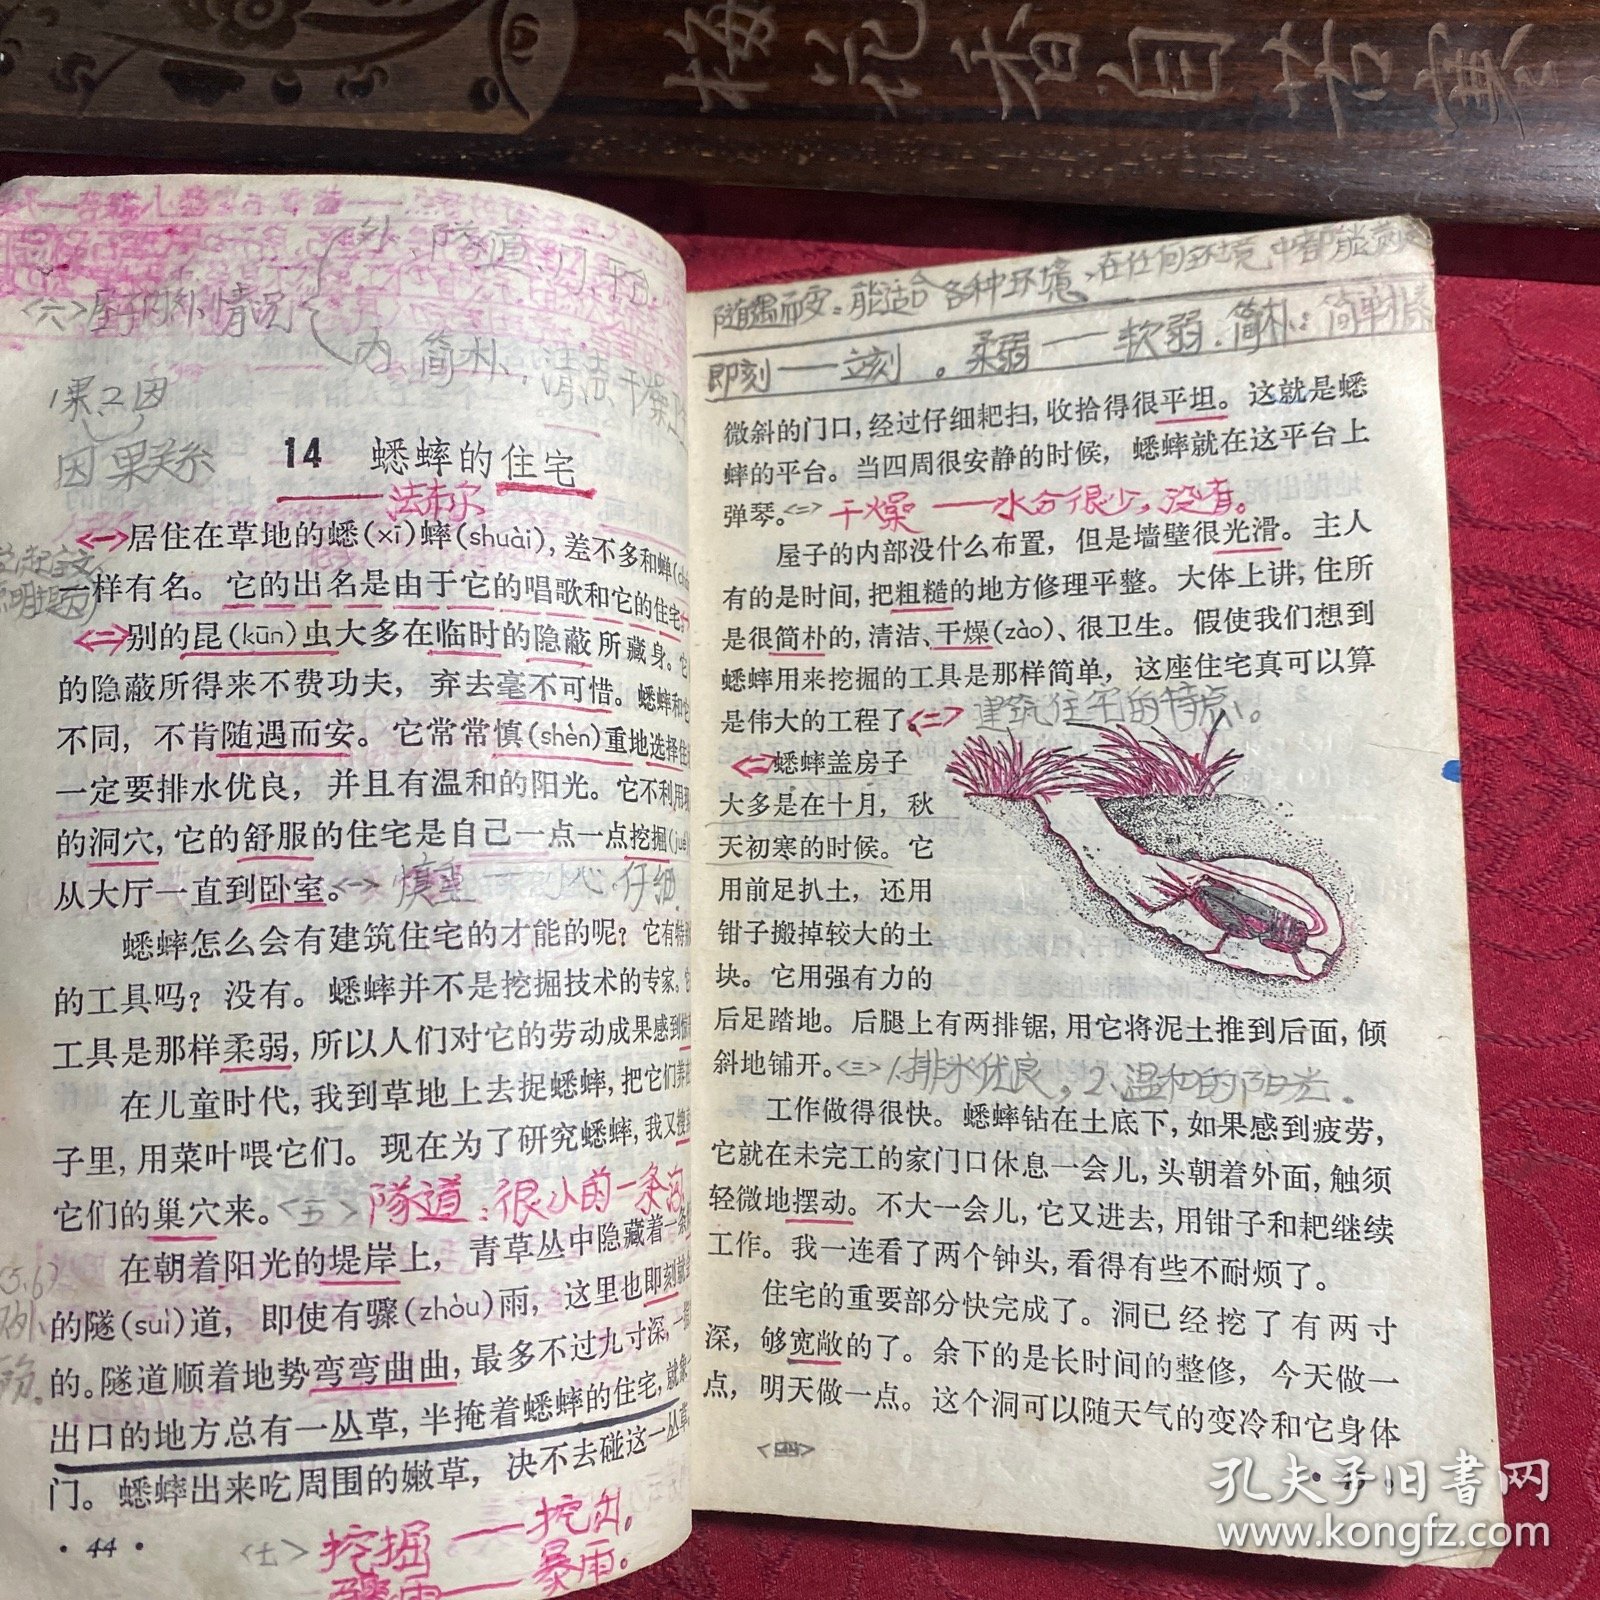 梅花香自苦寒
外 隧道、门 平台
<六>屋子内外情况
内 简朴、清洁、干燥、卫
1果 2因
因果关系
14 蟋蟀的住宅
法布尔
<一>居住在草地的蟋(xī)蟀(shuài),差不多和蝉
一样有名。它的出名是由于它的唱歌和它的住宅。
<二>别的昆(kūn)虫大多在临时的隐蔽所藏身。它
的隐蔽所得来不费功夫，弃去毫不可惜。蟋蟀和它
不同，不肯随遇而安。它常常慎(shèn)重地选择住
一定要排水优良，并且有温和的阳光。它不利用现
的洞穴,它的舒服的住宅是自己一点一点挖掘(jué
从大厅一直到卧室。<一> 慎重——小心、仔细.
蟋蟀怎么会有建筑住宅的才能的呢？它有特别
的工具吗？没有。蟋蟀并不是挖掘技术的专家。它
工具是那样柔弱,所以人们对它的劳动成果感到惊
在儿童时代,我到草地上去捉蟋蟀,把它们养在
子里,用菜叶喂它们。现在为了研究蟋蟀,我又搜
它们的巢穴来。<五> 隧道：很小的一条沟
在朝着阳光的堤岸上，青草丛中隐藏着一条
的隧(suì)道，即使有骤(zhòu)雨，这里也即刻就会
的。隧道顺着地势弯弯曲曲,最多不过九寸深,一指
出口的地方总有一丛草,半掩着蟋蟀的住宅,就象一
门。蟋蟀出来吃周围的嫩草，决不去碰这一丛草
·44·
<七> 挖掘——挖出。
骤雨——暴雨。
随遇而安：能适合各种环境、在任何环境中都能
即刻——立刻。柔弱——软弱.简朴：简单
微斜的门口,经过仔细耙扫,收拾得很平坦。这就是蟋
蟀的平台。当四周很安静的时候，蟋蟀就在这平台上
弹琴。<二> 干燥——水分很少,没有。
屋子的内部没什么布置，但是墙壁很光滑。主人
有的是时间,把粗糙的地方修理平整。大体上讲,住所
是很简朴的,清洁、干燥(zào)、很卫生。假使我们想到
蟋蟀用来挖掘的工具是那样简单，这座住宅真可以算
是伟大的工程了。<二> 建筑住宅的特点。
蟋蟀盖房子
大多是在十月，秋
天初寒的时候。它
用前足扒土，还用
钳子搬掉较大的土
块。它用强有力的
后足踏地。后腿上有两排锯,用它将泥土推到后面,倾
斜地铺开。<三> 1.排水优良，2、温和的阳光.
工作做得很快。蟋蟀钻在土底下,如果感到疲劳,
它就在未完工的家门口休息一会儿,头朝着外面,触须
轻微地摆动。不大一会儿,它又进去,用钳子和耙继续
工作。我一连看了两个钟头,看得有些不耐烦了。
住宅的重要部分快完成了。洞已经挖了有两寸
深，够宽敞的了。余下的是长时间的整修，今天做一
点，明天做一点。这个洞可以随天气的变冷和它身体
<四>
孔夫子旧书网
www.kongfz.com